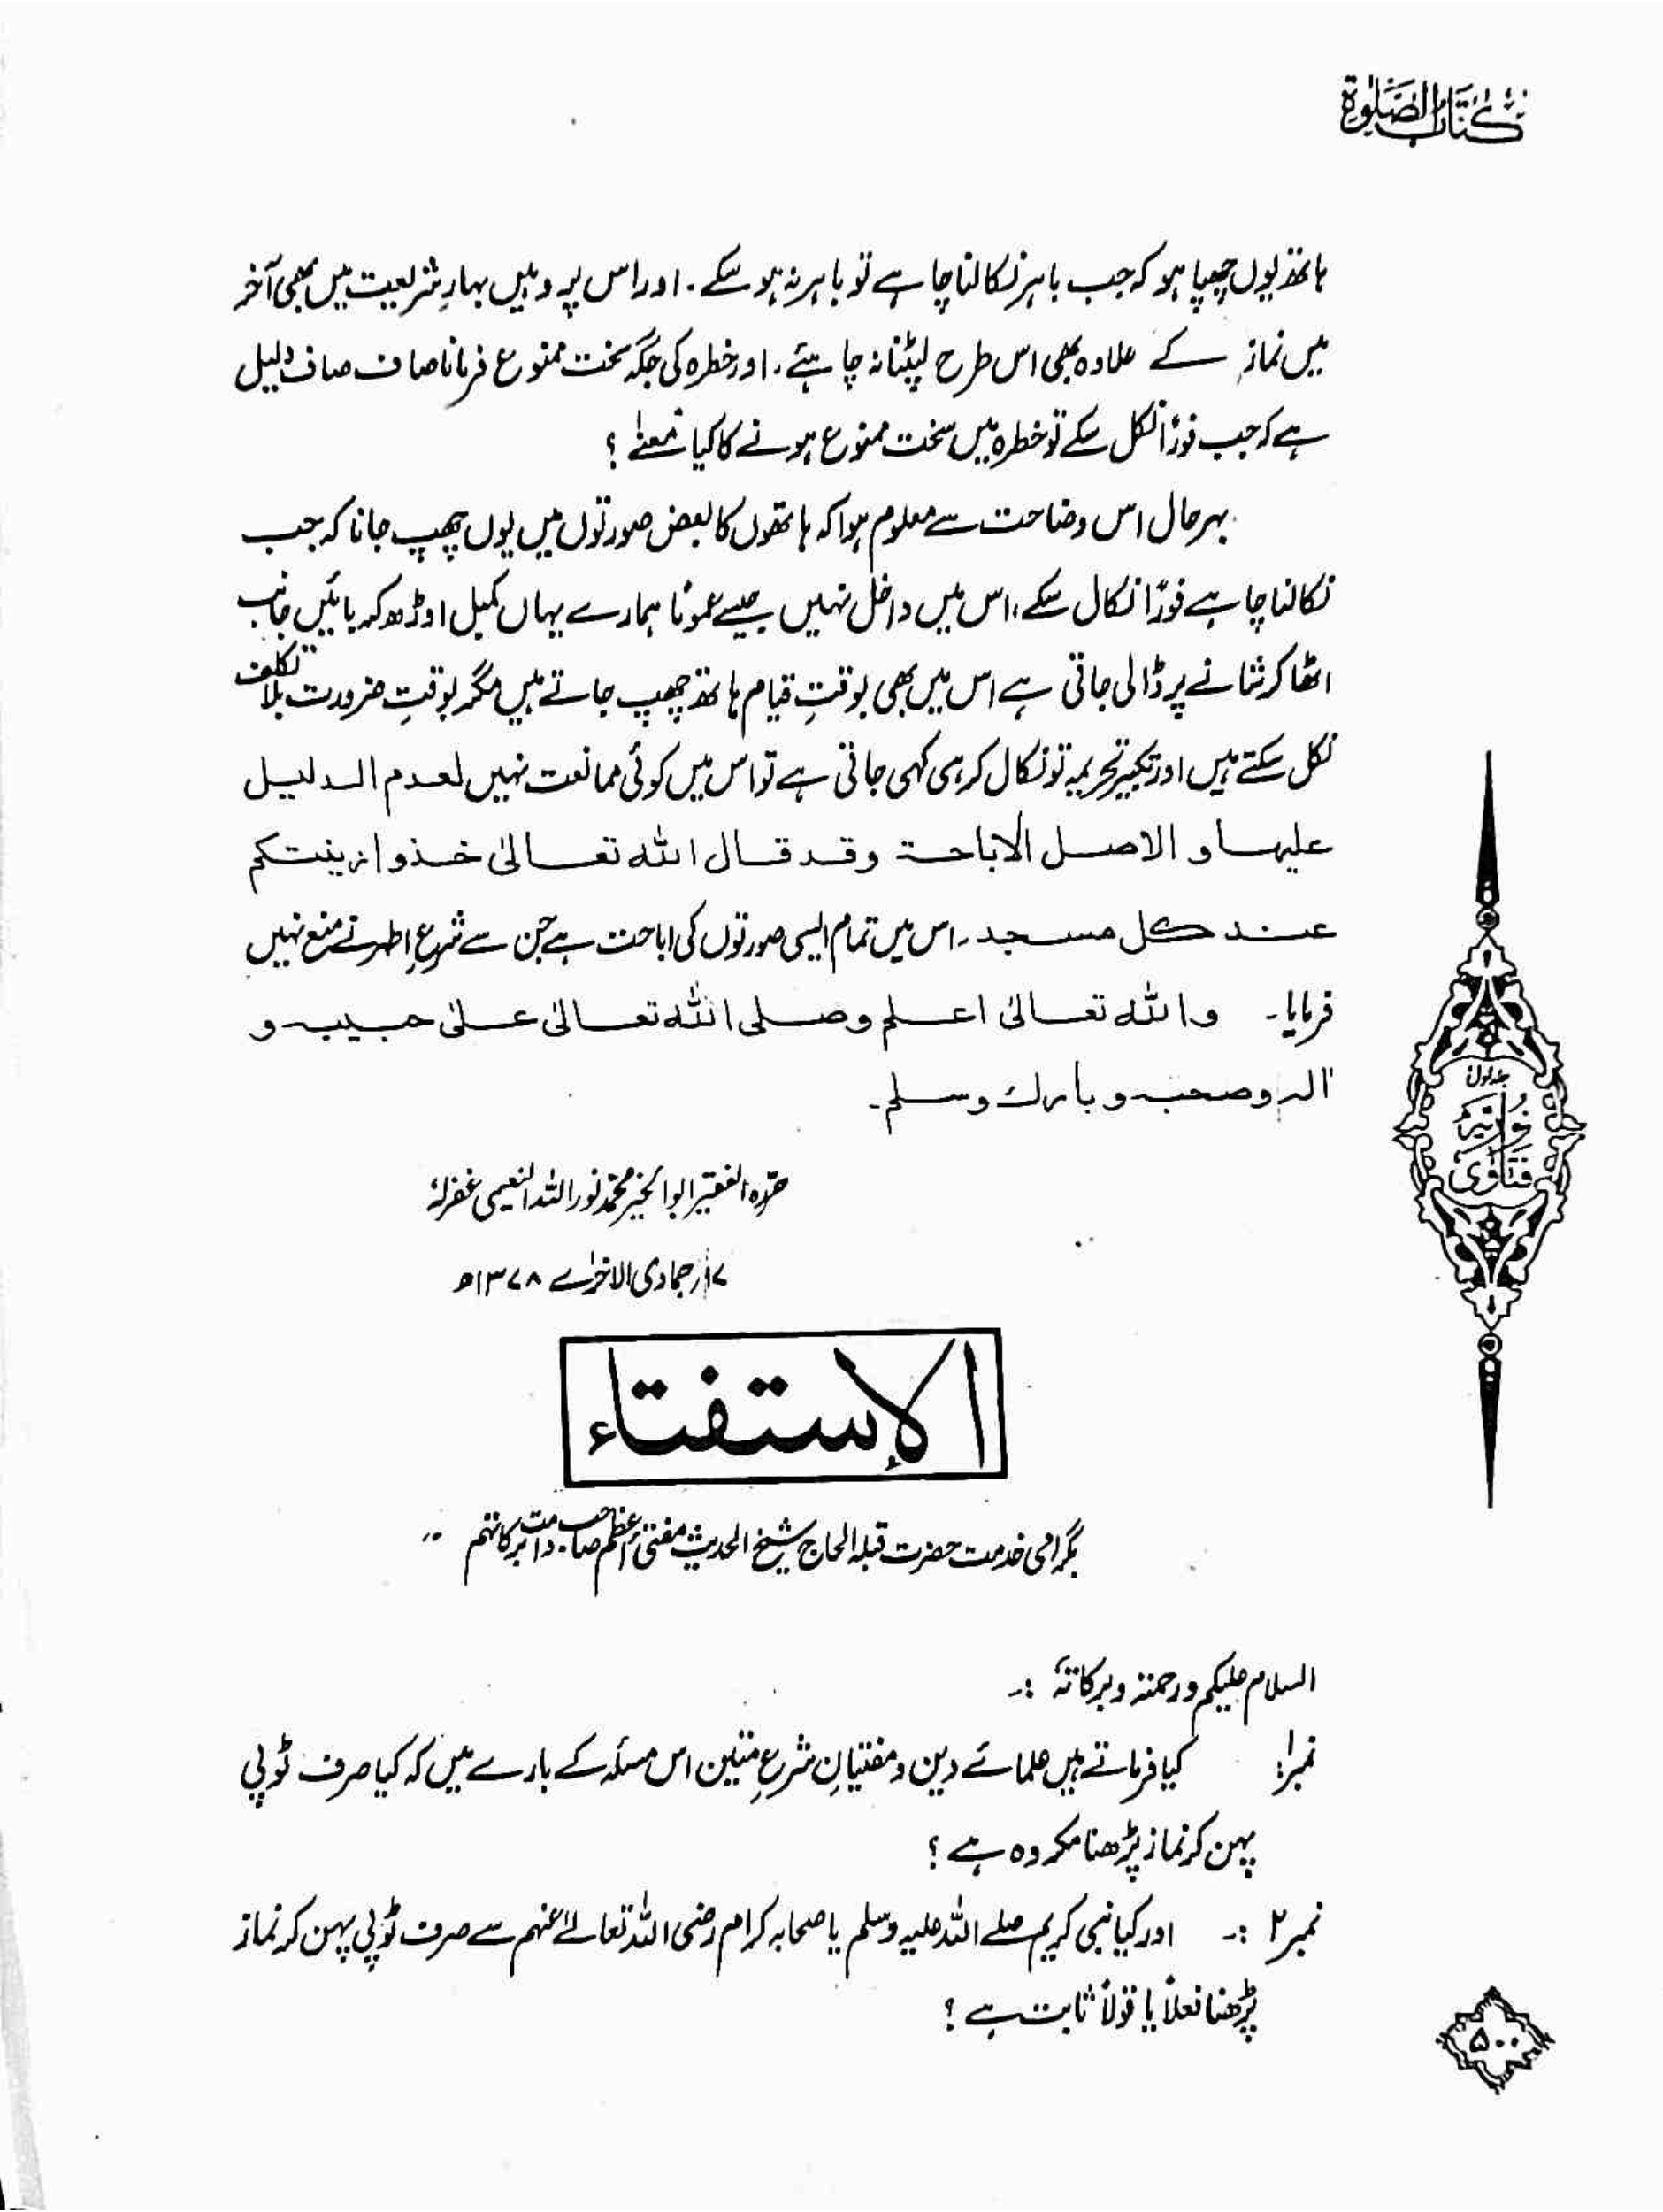 کتاب الصلوٰۃ
ہاتھ یوں چھپا ہو کہ جب باہر نکالنا چاہے تو باہر نہ ہو سکے۔ اور اس پر وہیں بہارِ شریعت میں بھی آخر
میں نماز کے علاوہ بھی اس طرح لپٹنا نہ چاہئے، اور خطرہ کی جگہ سخت ممنوع فرمانا صاف صاف دلیل
ہے کہ جب فوراً نکل سکے تو خطرہ میں سخت ممنوع ہونے کا کیا معنے ؟
بہرحال اس وضاحت سے معلوم ہوا کہ ہاتھوں کا بعض صورتوں میں یوں چھپ جانا کہ جب
نکالنا چاہے فوراً نکال سکے، اس میں داخل نہیں جیسے عموماً ہمارے یہاں کمبل اوڑھ کر بائیں جانب
اٹھا کر شانے پر ڈالی جاتی ہے اس میں بھی بوقتِ قیام ہاتھ چھپ جاتے ہیں مگر بوقتِ ضرورت بلا تکلف
نکل سکتے ہیں اور تکبیر تحریمہ تو نکال کر ہی کہی جاتی ہے تو اس میں کوئی ممانعت نہیں لعدم الدلیل
علیھا و الاصل الاباحۃ وقد قال اللہ تعالیٰ خذوا زینتکم
عند کل مسجد۔ اس میں تمام ایسی صورتوں کی اباحت ہے جن سے شرعِ اطہر نے منع نہیں
فرمایا۔ واللہ تعالیٰ اعلم وصلی اللہ تعالیٰ علیٰ حبیبہ و
اٰلہ وصحبہ وبارک وسلم۔
حررہ الفقیر ابو الخیر محمد نور اللہ النعیمی غفرلہٗ
۱۷؍جمادی الاخرٰے ۱۳۷۸ھ
جلد اول
فتاوٰی نوریہ
الاِستفتاء
بگرامی خدمت حضرت قبلہ الحاج شیخ الحدیث مفتی اعظم صاحب دامت برکاتہم
السلام علیکم ورحمتہ وبرکاتہٗ :۔
نمبر۱: کیا فرماتے ہیں علمائے دین و مفتیانِ شرعِ متین اس مسئلہ کے بارے میں کہ کیا صرف ٹوپی
پہن کر نماز پڑھنا مکروہ ہے ؟
نمبر ۲ :۔ اور کیا نبی کریم صلے اللہ علیہ وسلم یا صحابہ کرام رضی اللہ تعالےٰ عنہم سے صرف ٹوپی پہن کر نماز
پڑھنا فعلاً یا قولاً ثابت ہے ؟
۵۰۰